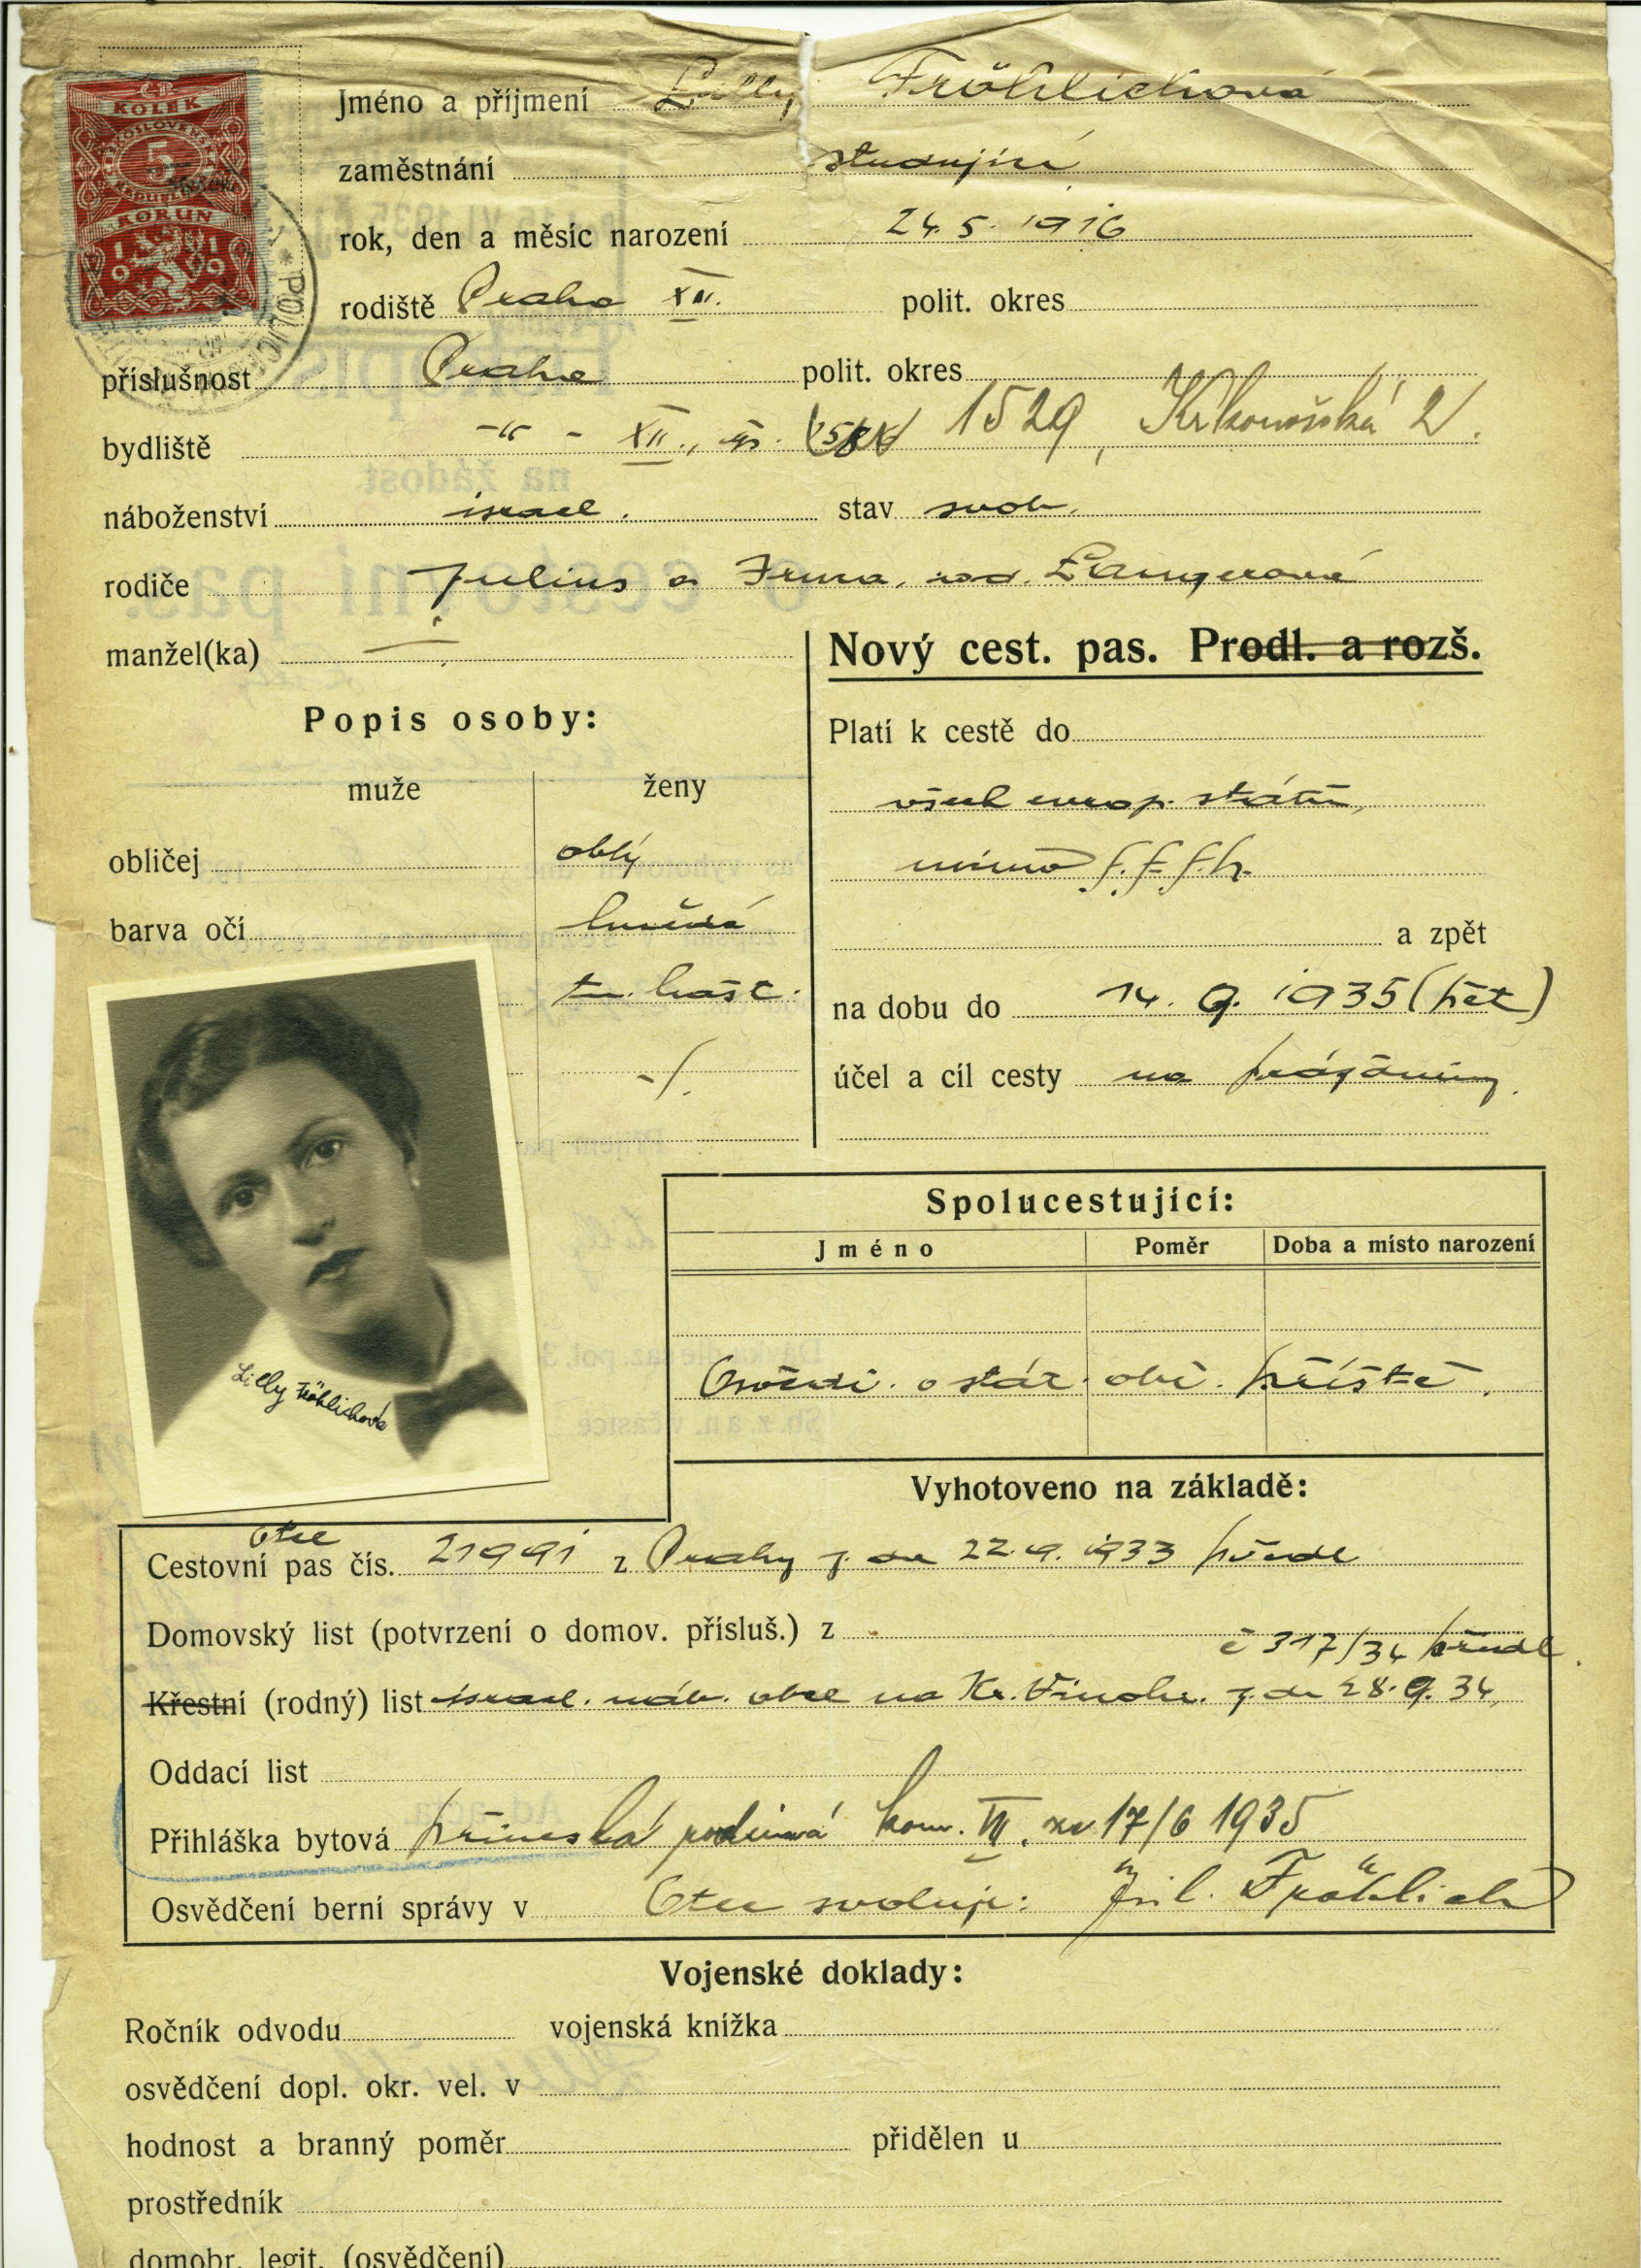 ČR
KOLEK
ČESKOSLOVENSKÁ
5
REPUBLIKA
KORUN
1919
Jméno a příjmení Lilly Fröhlichová
zaměstnání studující
rok, den a měsíc narození 24. 5. 1916
rodiště Praha XII. polit. okres
příslušnost Praha polit. okres
bydliště -"- XII., 1529, Krkonošská 2/.
náboženství israel. stav svob.
rodiče Julius a Irma, roz. Langerová
manžel(ka)
Nový cest. pas. Prodl. a rozš.
Popis osoby:
Platí k cestě do
muže ženy
všech evrop. států,
obličej oblý
mimo
barva očí hnědá
a zpět
tm. kašt.
na dobu do 14. 9. 1935 (pět)
-/.
účel a cíl cesty na prázdniny.
Spolucestující:
Jméno Poměr Doba a místo narození
Osvědč. o stát. obč. příště.
Lilly Fröhlichová
Vyhotoveno na základě:
Otce
Cestovní pas čís. 21991 z Prahy z. dne 22.9.1933 předl
Domovský list (potvrzení o domov. přísluš.) z
č 317/34 předl.
Křestní (rodný) list israel. náb. obce na Kr. Vinohr. z. dne 28. 9. 34,
Oddací list
Přihláška bytová kom. ze 17/6 1935
Osvědčení berní správy v Otec svoluje: Jul. Fröhlich
Vojenské doklady:
Ročník odvodu vojenská knížka
osvědčení dopl. okr. vel. v
hodnost a branný poměr přidělen u
prostředník
domobr. legit. (osvědčení)